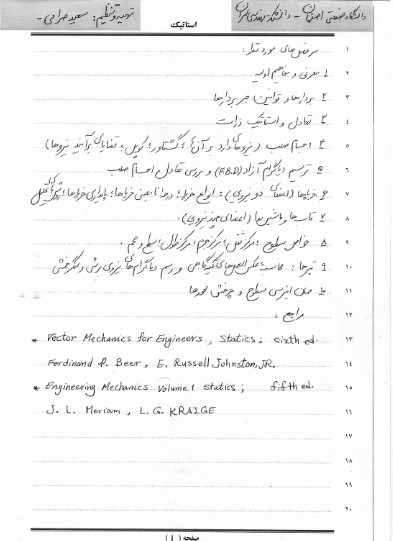 دانشگاه صنعتی اصفهان - دانشکده مهندسی عمران
تهیه و تنظیم: سعید صرامی -
استاتیک
۱ سرفصل های مورد نظر:
۲ ۱ معرفی و مفاهیم اولیه
۳ ۲ بردارها و قوانین جبر بردارها
۴ ۳ تعادل و استاتیک ذرات
۵ ۴ اجسام صلب (نیروهای وارد بر آن، گشتاور، کوپل، برآیند نیروها)
۶ ۵ ترسیم دیاگرام آزاد (F.B.D) و بررسی تعادل اجسام صلب
۷ ۶ خرپاها (اعضای دو نیرویی): انواع خرپا؛ درجه نامعینی خرپاها؛ پایداری خرپاها؛
۸ ۷ قاب ها و ماشین ها (اعضای چند نیرویی).
۹ ۸ خواص سطوح: مرکز ثقل؛ مرکز جرم؛ مرکز طول، سطح و حجم.
۱۰ ۹ تیرها: محاسبه عکس العمل های تکیه گاهی و رسم دیاگرام های نیروی برشی و لنگر خمشی
۱۱ ۱۰ ممان اینرسی سطوح و چرخش محورها
۱۲ مراجع:
۱۳ * Vector Mechanics for Engineers, Statics; sixth ed.
۱۴ Ferdinand P. Beer, E. Russell Johnston, JR.
۱۵ * Engineering Mechanics. Volume 1 Statics; fifth ed.
۱۶ J. L. Meriam, L. G. KRAIGE
۱۷
۱۸
۱۹
۲۰
صفحه (1)